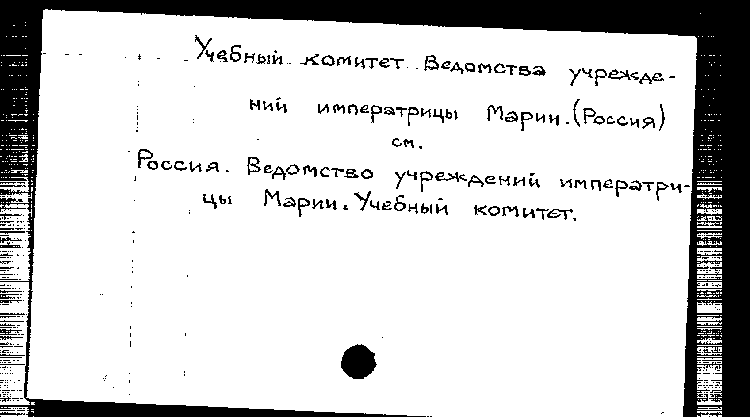 Учебный комитет Ведомства учрежде-
ний императрицы Марии. (Россия)
см.
Россия. Ведомство учреждений императри-
цы Марии. Учебный комитет.